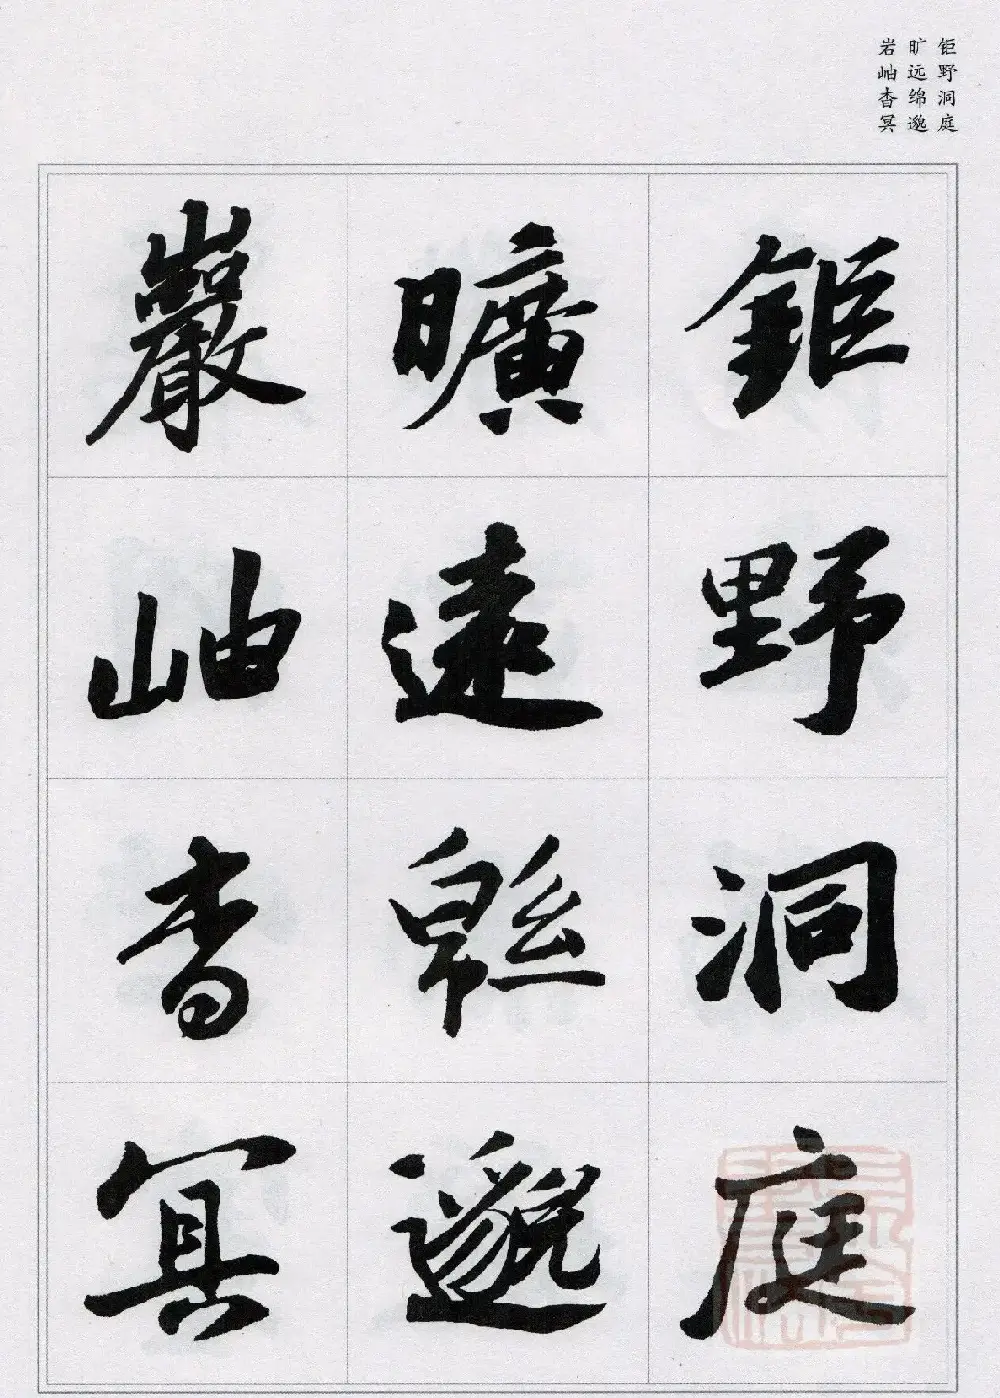 钜野洞庭
旷远绵邈
岩岫杳冥
鉅野洞庭
曠遠緜邈
巖岫杳冥